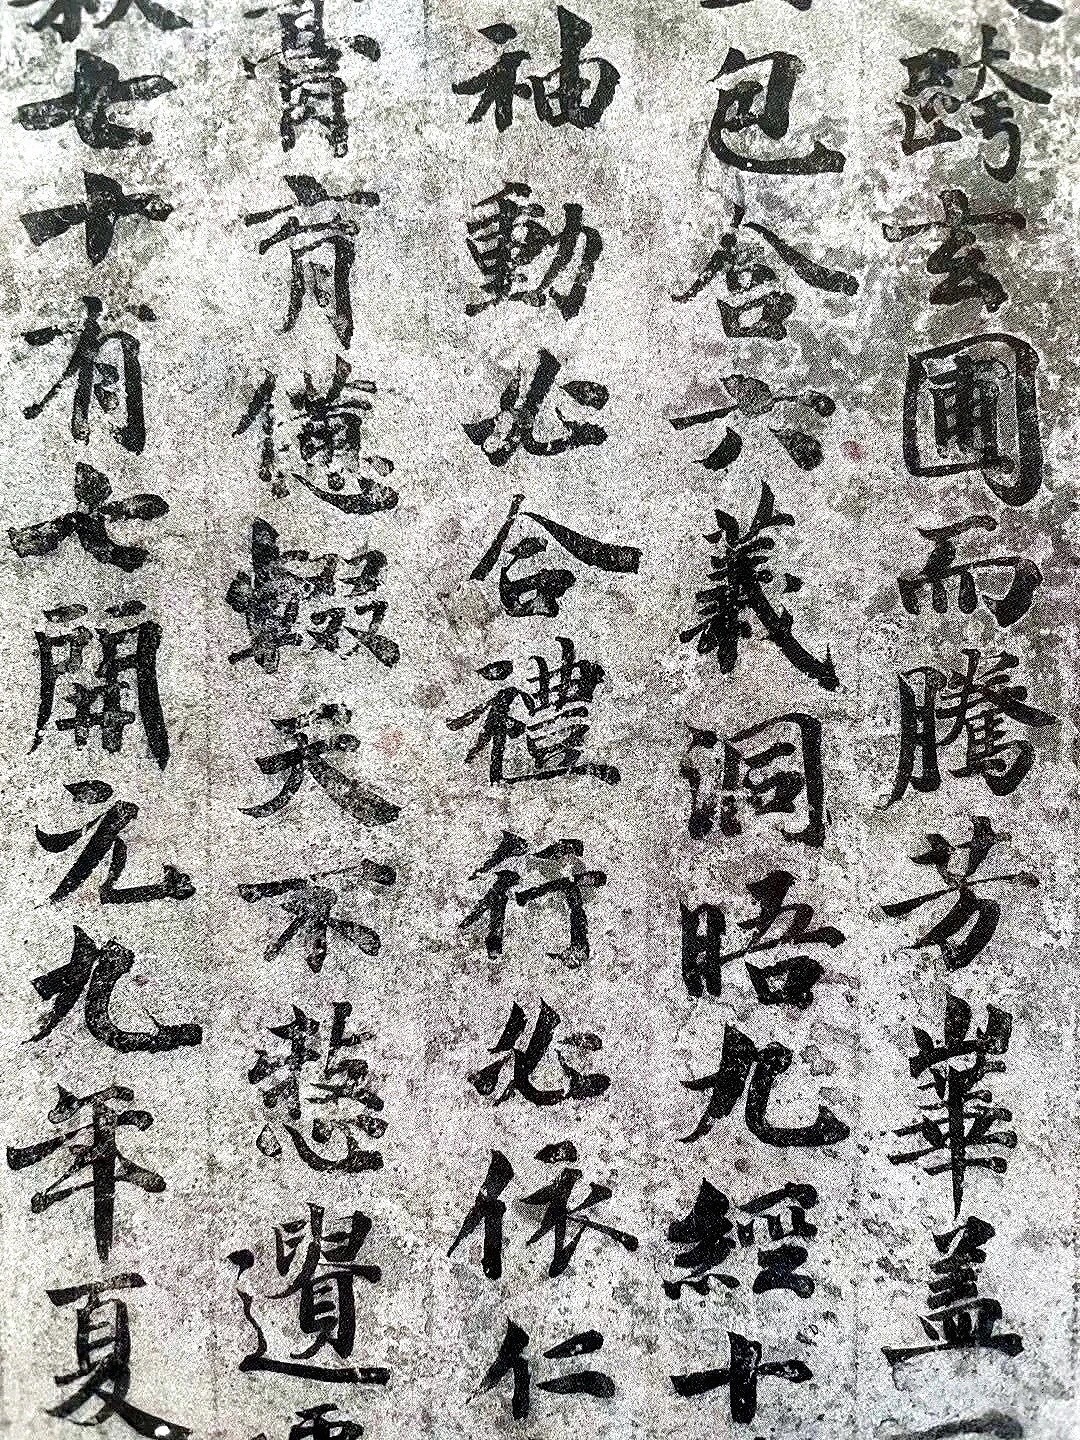 跨玄圃而騰芳華蓋
包含六義洞晤九經十
袖動必合禮行必依仁
膏肓僊輟天不憖遺
秋七十有七開元九年夏